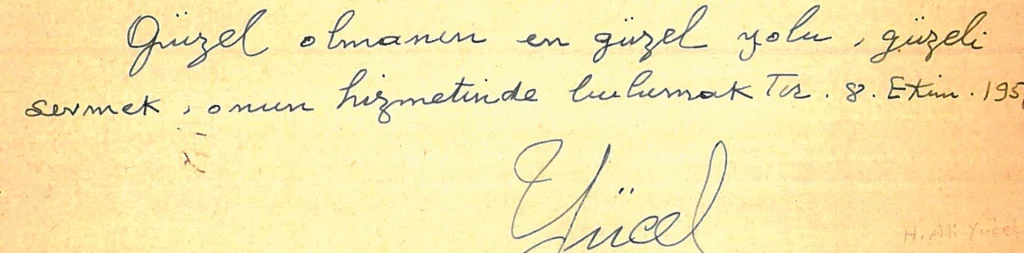 Güzel olmanın en güzel yolu, güzeli
sevmek, onun hizmetinde bulunmaktır. 8. Ekim. 195
Yücel
H. Ali Yücel